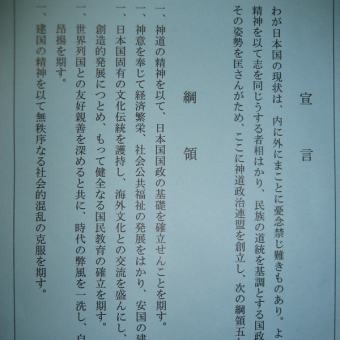 宣言
わが日本国の現状は、内に外にまことに憂念禁じ難きものあり。よ
精神を以て志を同じうする者相はかり、民族の道統を基調とする国政
その姿勢を匡さんがため、ここに神道政治連盟を創立し、次の綱領五
綱領
一、神道の精神を以て、日本国国政の基礎を確立せんことを期す。
一、神意を奉じて経済繁栄、社会公共福祉の発展をはかり、安国の建
一、日本国固有の文化伝統を護持し、海外文化との交流を盛んにし、
創造的発展につとめ、もって健全なる国民教育の確立を期す。
一、世界列国との友好親善を深めると共に、時代の弊風を一洗し、自
昂揚を期す。
一、建国の精神を以て無秩序なる社会的混乱の克服を期す。